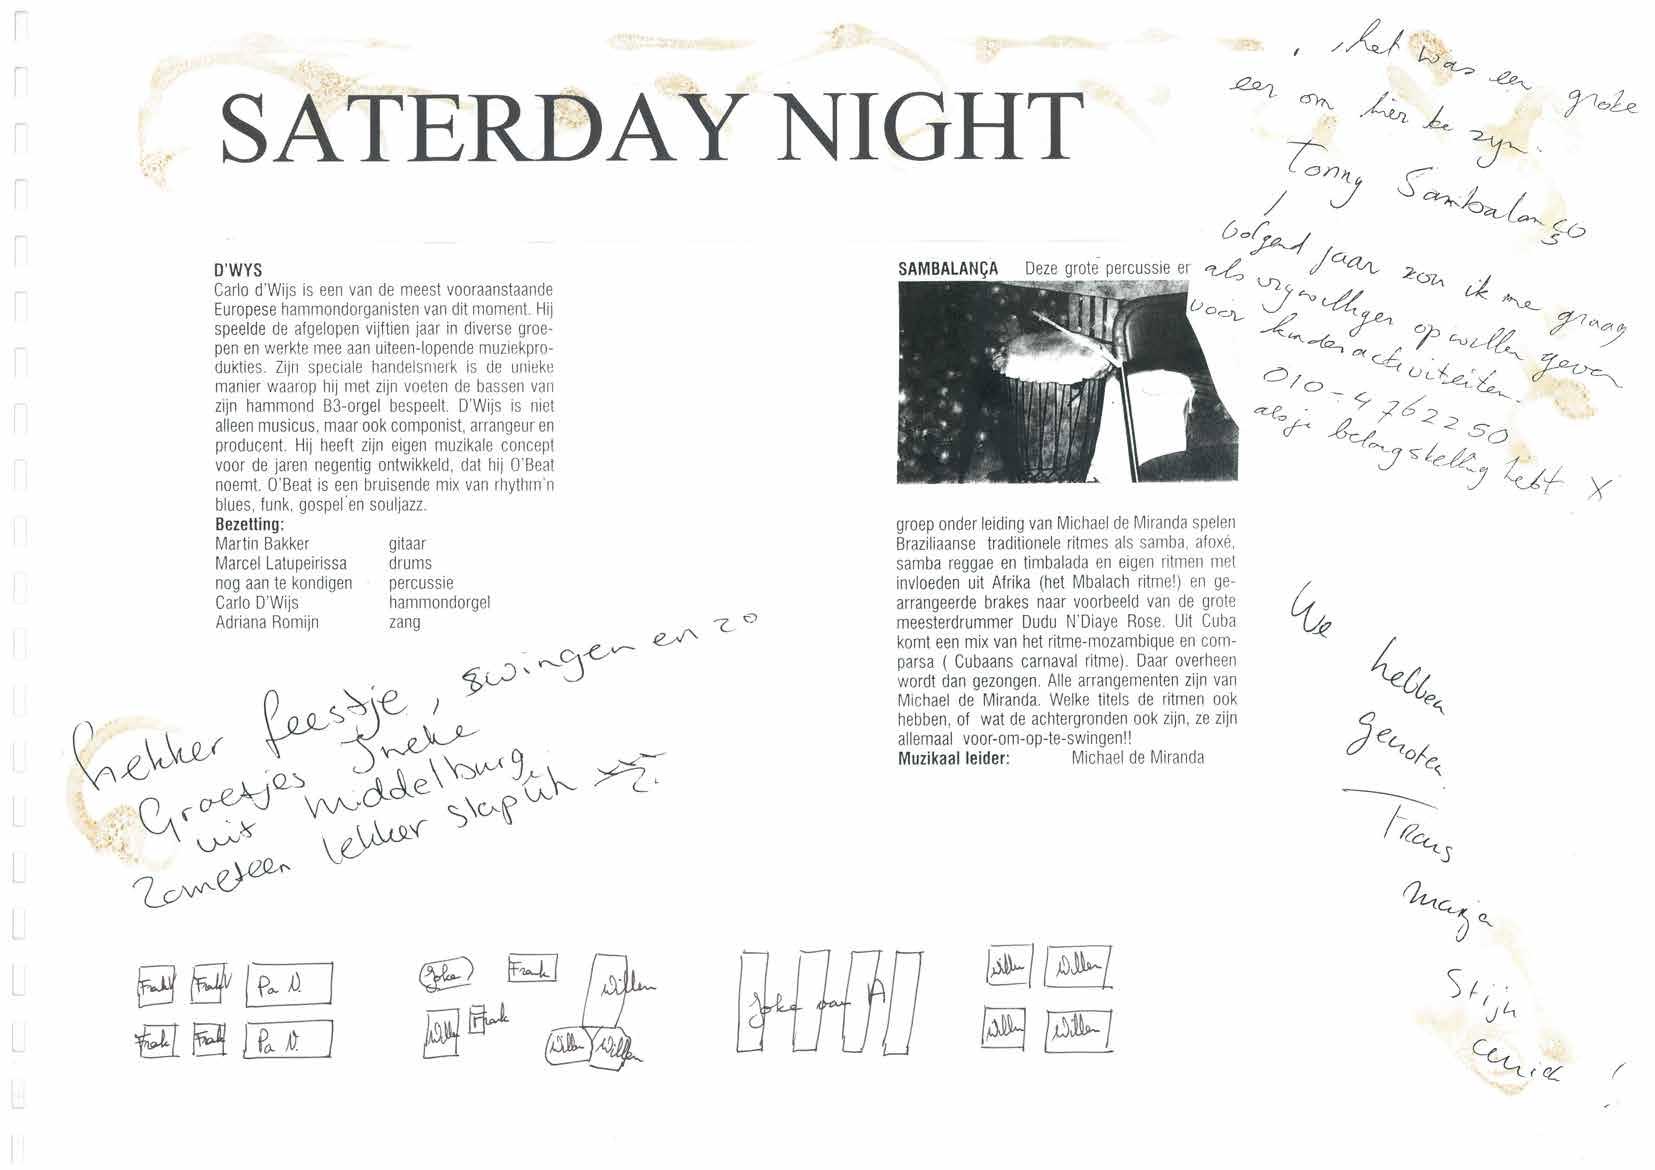 SATERDAY NIGHT
D'WYS
Carlo d'Wijs is een van de meest vooraanstaande
Europese hammondorganisten van dit moment. Hij
speelde de afgelopen vijftien jaar in diverse groe-
pen en werkte mee aan uiteen-lopende muziekpro-
dukties. Zijn speciale handelsmerk is de unieke
manier waarop hij met zijn voeten de bassen van
zijn hammond B3-orgel bespeelt. D'Wijs is niet
alleen musicus, maar ook componist, arrangeur en
producent. Hij heeft zijn eigen muzikale concept
voor de jaren negentig ontwikkeld, dat hij O'Beat
noemt. O'Beat is een bruisende mix van rhythm'n
blues, funk, gospel en souljazz.
Bezetting:
Martin Bakker gitaar
Marcel Latupeirissa drums
nog aan te kondigen percussie
Carlo D'Wijs hammondorgel
Adriana Romijn zang
Lekker feestje, swingen en zo
Groetjes Ineke
uit Middelburg
Zometeen lekker slapuh
SAMBALANÇA Deze grote percussie er
groep onder leiding van Michael de Miranda spelen
Braziliaanse traditionele ritmes als samba, afoxé,
samba reggae en timbalada en eigen ritmen met
invloeden uit Afrika (het Mbalach ritme!) en ge-
arrangeerde brakes naar voorbeeld van de grote
meesterdrummer Dudu N'Diaye Rose. Uit Cuba
komt een mix van het ritme-mozambique en com-
parsa ( Cubaans carnaval ritme). Daar overheen
wordt dan gezongen. Alle arrangementen zijn van
Michael de Miranda. Welke titels de ritmen ook
hebben, of wat de achtergronden ook zijn, ze zijn
allemaal voor-om-op-te-swingen!!
Muzikaal leider: Michael de Miranda
het was een grote
eer om hier te zijn.
Tonny Sambalanço
volgend jaar zou ik me graag
als vrywilliger op willen geven
voor kinderactiviteiten.
010-4762250
als je belangstelling hebt X
We
hebben
genoten.
Frans
Marja
Stijn
!
Frank Frank Pa N.
Frank Frank Pa N.
Joke Frank Willem
Willem Frank
Willem Willem
Joke van A
Willem Willem
Willem Willem